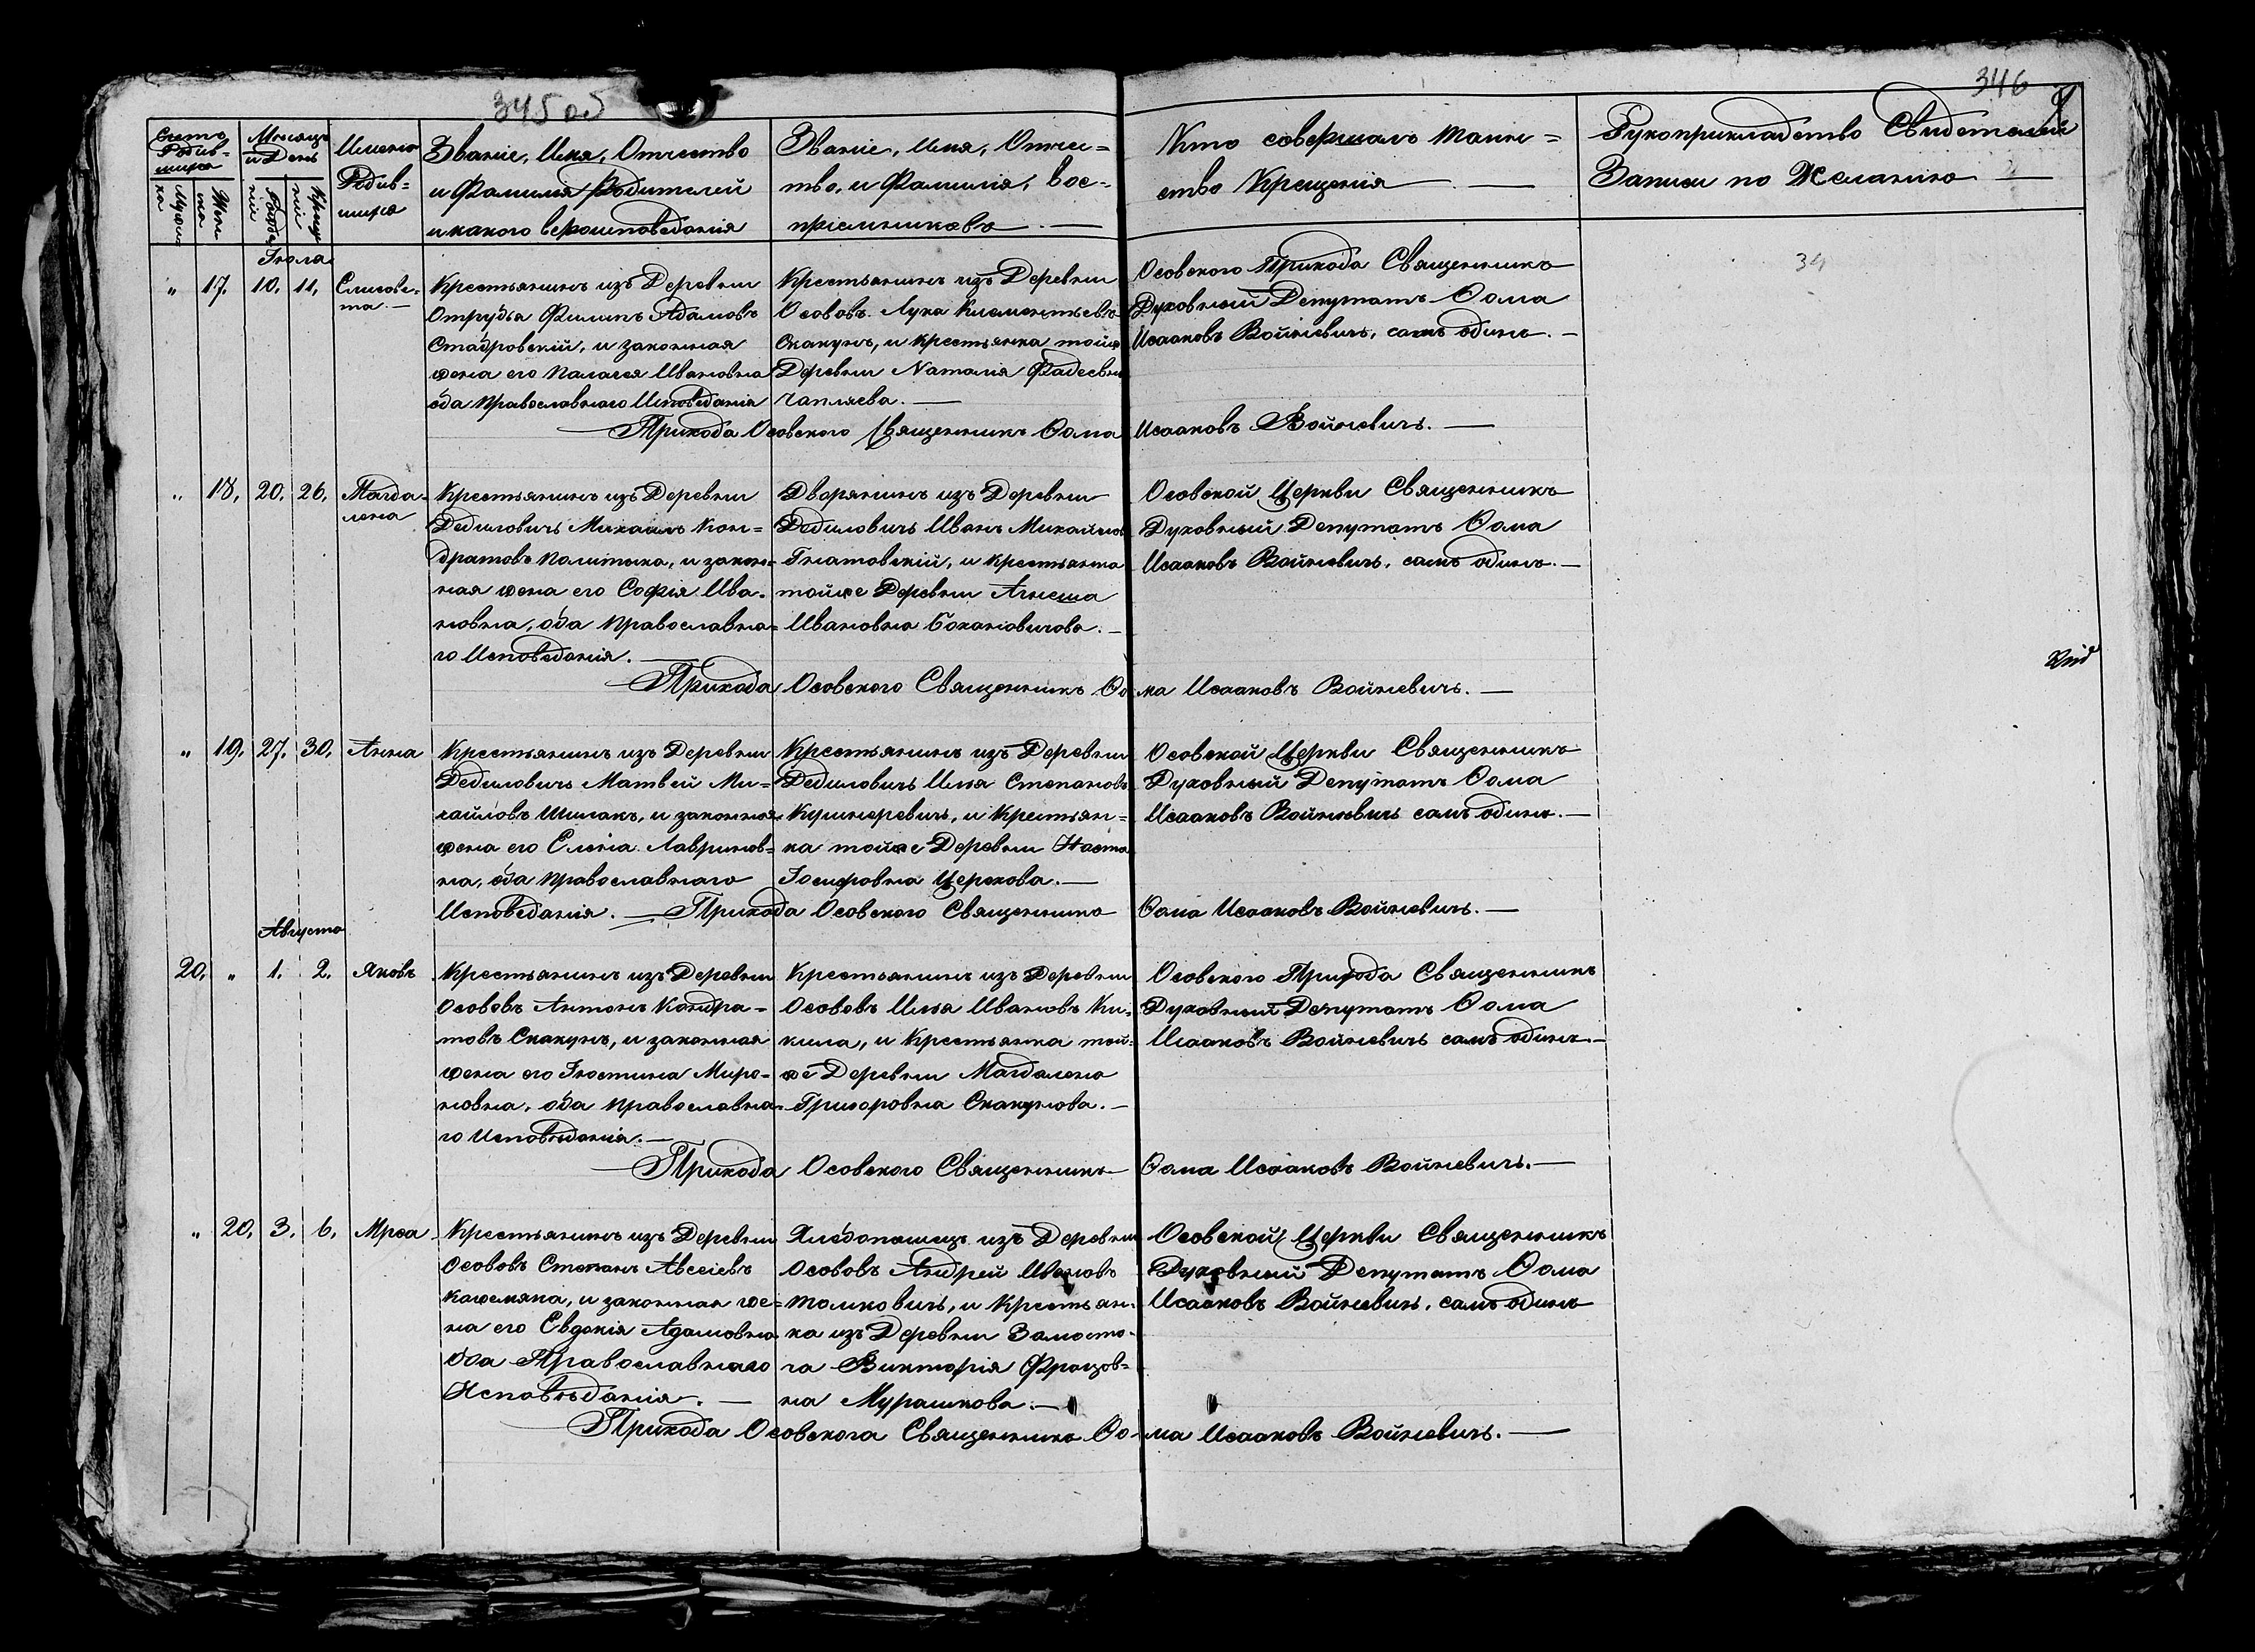 345 об
346
Счетъ Родив-шихся
Мѣсяцъ и День
Имена Родив=шихся
Званіе, Имя, Отчество
и Фамилія Родителей
и какого вероисповеданія
Званіе, Имя, Отчес=
тво, и Фамилія, вос=
пріемниковъ. —
Кто совершалъ Таин=
ство Крещенія —
Рукоприкладство Свидетелей
Записи по Желанію —
Мужес ка
Жен ска
Рожде ній
Креще ній
Іюля
34
„ 17. 10. 11. Елисаве=
та. —
Крестьянинъ изъ Деревни
Отрубья Филипъ Адамовъ
Ставровскій, и законная
жена его Палагея Ивановна
оба православнаго Исповеданія
Крестьянинъ изъ Деревни
Осововъ Лука Климентьевъ
Скакунъ, и крестьянка тойже
Деревни Наталия Фадеевна
Чапляева. —
Осовского Прихода Священникъ
Духовный Депутатъ Ѳома
Исааковъ Войневичъ, самъ одинъ. —
Прихода Осовского Священникъ Ѳома Исааковъ Войневичъ. —
„ 18. 20. 26. Магда=
лена
Крестьянинъ изъ Деревни
Дедиловичъ Михаилъ Кон=
дратовъ Калитыка, и закон=
ная жена его Софія Ива=
новна, оба православна=
го Исповеданія. —
Дворянинъ изъ Деревни
Дедиловичъ Иванъ Михайловъ
Гнатовскій, и крестьянка
тойже Деревни Агнеша
Ивановна Бохановичова. —
Осовской Церкви Священникъ
Духовный Депутатъ Ѳома
Исааковъ Войневичъ, самъ одинъ. —
Прихода Осовского Священникъ Ѳома Исааковъ Войневичъ. —
„ 19. 27. 30. Анна
Крестьянинъ изъ Деревни
Дедиловичъ Матвей Ми=
хайловъ Шипакъ, и законная
жена его Елена Лавринов=
на, оба православнаго
Исповеданія. —
Крестьянинъ изъ Деревни
Дедиловичъ Илья Степановъ
Кушнеревичъ, и Крестьян=
ка тойже Деревни Наста
Іосифовна Церехова. —
Осовской Церкви Священникъ
Духовный Депутатъ Ѳома
Исааковъ Войневичъ самъ одинъ. —
Прихода Осовского Священникъ Ѳома Исааковъ Войневичъ. —
Августа
20. „ 1. 2. Яковъ
Крестьянинъ изъ Деревни
Осововъ Антонъ Кондра=
товъ Скакунъ, и законная
жена его Іюстина Миро=
новна, оба православна=
го исповѣданія. —
Крестьянинъ изъ Деревни
Осововъ Илья Ивановъ Ки=
кила, и Крестьянка той=
же Деревни Магдалена
Григоровна Скакунова. —
Осовского Прихода Священникъ
Духовный Депутатъ Ѳома
Исааковъ Войневичъ самъ одинъ. —
Прихода Осовского Священникъ Ѳома Исааковъ Войневичъ. —
„ 20. 3. 6.
Крестьянинъ изъ Деревни
Осововъ Степанъ Авсеіевъ
Кожемяка, и законная же=
на его Евдокія Адамовна
Оба Православнаго
Исповѣданія. —
Хлебопашецъ изъ Деревни
Осововъ Андрей Ивановъ
Толковичъ, и Крестьян=
ка изъ Деревни Замосто=
ча Викторія Францов=
на Мурашкова. —
Осовской Церкви Священникъ
Духовный Депутатъ Ѳома
Исааковъ Войневичъ, самъ одинъ
Прихода Осовскога Священникъ Ѳо=ма Исааковъ Войневичъ. —